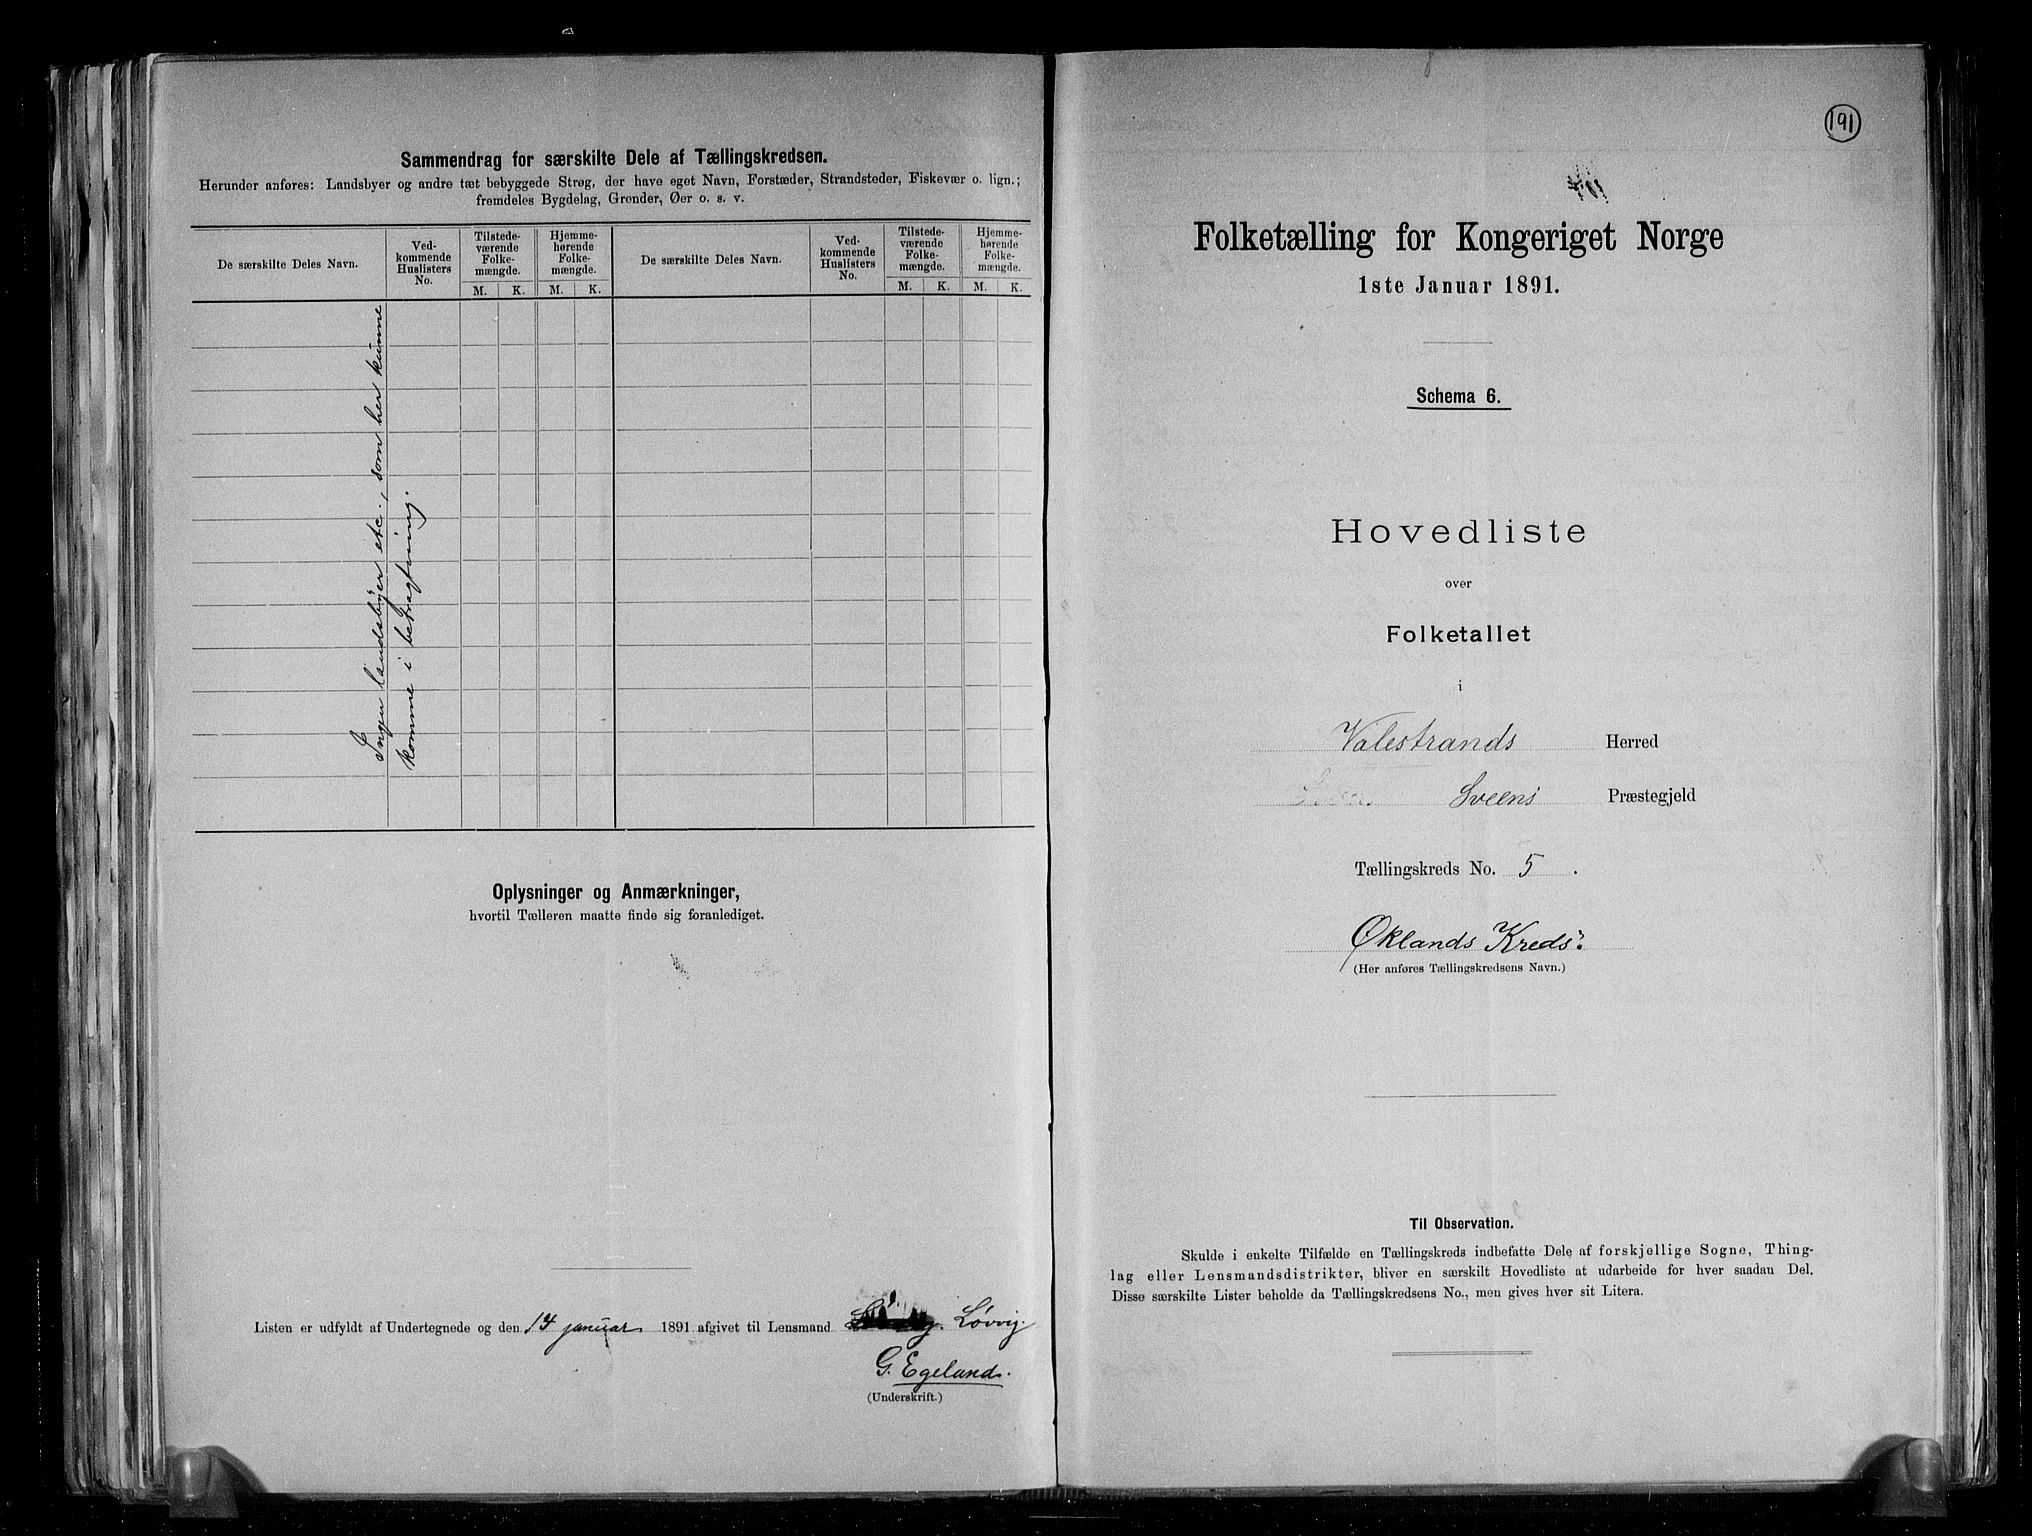 Sammendrag for særskilte Dele af Tællingskredsen.
Herunder anføres: Landsbyer og andre tæt bebyggede Strøg, der have eget Navn, Forstæder, Strandsteder, Fiskevær o. lign.;
fremdeles Bygdelag, Grender, Øer o. s. v.
De særskilte Deles Navn.
Ved-
kommende
Huslisters
No.
Tilstede-
værende
Folke-
mængde.
Hjemme-
hørende
Folke-
mængde.
M. K. M. K.
De særskilte Deles Navn.
Ved-
kommende
Huslisters
No.
Tilstede-
værende
Folke-
mængde.
Hjemme-
hørende
Folke-
mængde.
M. K. M. K.
Ingen landsbyer etc., som her kunne
komme i betragtning.
Oplysninger og Anmærkninger,
hvortil Tælleren maatte finde sig foranlediget.
Listen er udfyldt af Undertegnede og den 14 januar 1891 afgivet til Lensmand Løvvig.
G. Egeland.
(Underskrift.)
191
Folketælling for Kongeriget Norge
1ste Januar 1891.
Schema 6.
Hovedliste
over
Folketallet
i
Valestrands Herred
Sveens Præstegjeld
Tællingskreds No. 5.
Øklands Kreds.
(Her anføres Tællingskredsens Navn.)
Til Observation.
Skulde i enkelte Tilfælde en Tællingskreds indbefatte Dele af forskjellige Sogne, Thing-
lag eller Lensmandsdistrikter, bliver en særskilt Hovedliste at udarbeide for hver saadan Del.
Disse særskilte Lister beholde da Tællingskredsens No., men gives hver sit Litera.